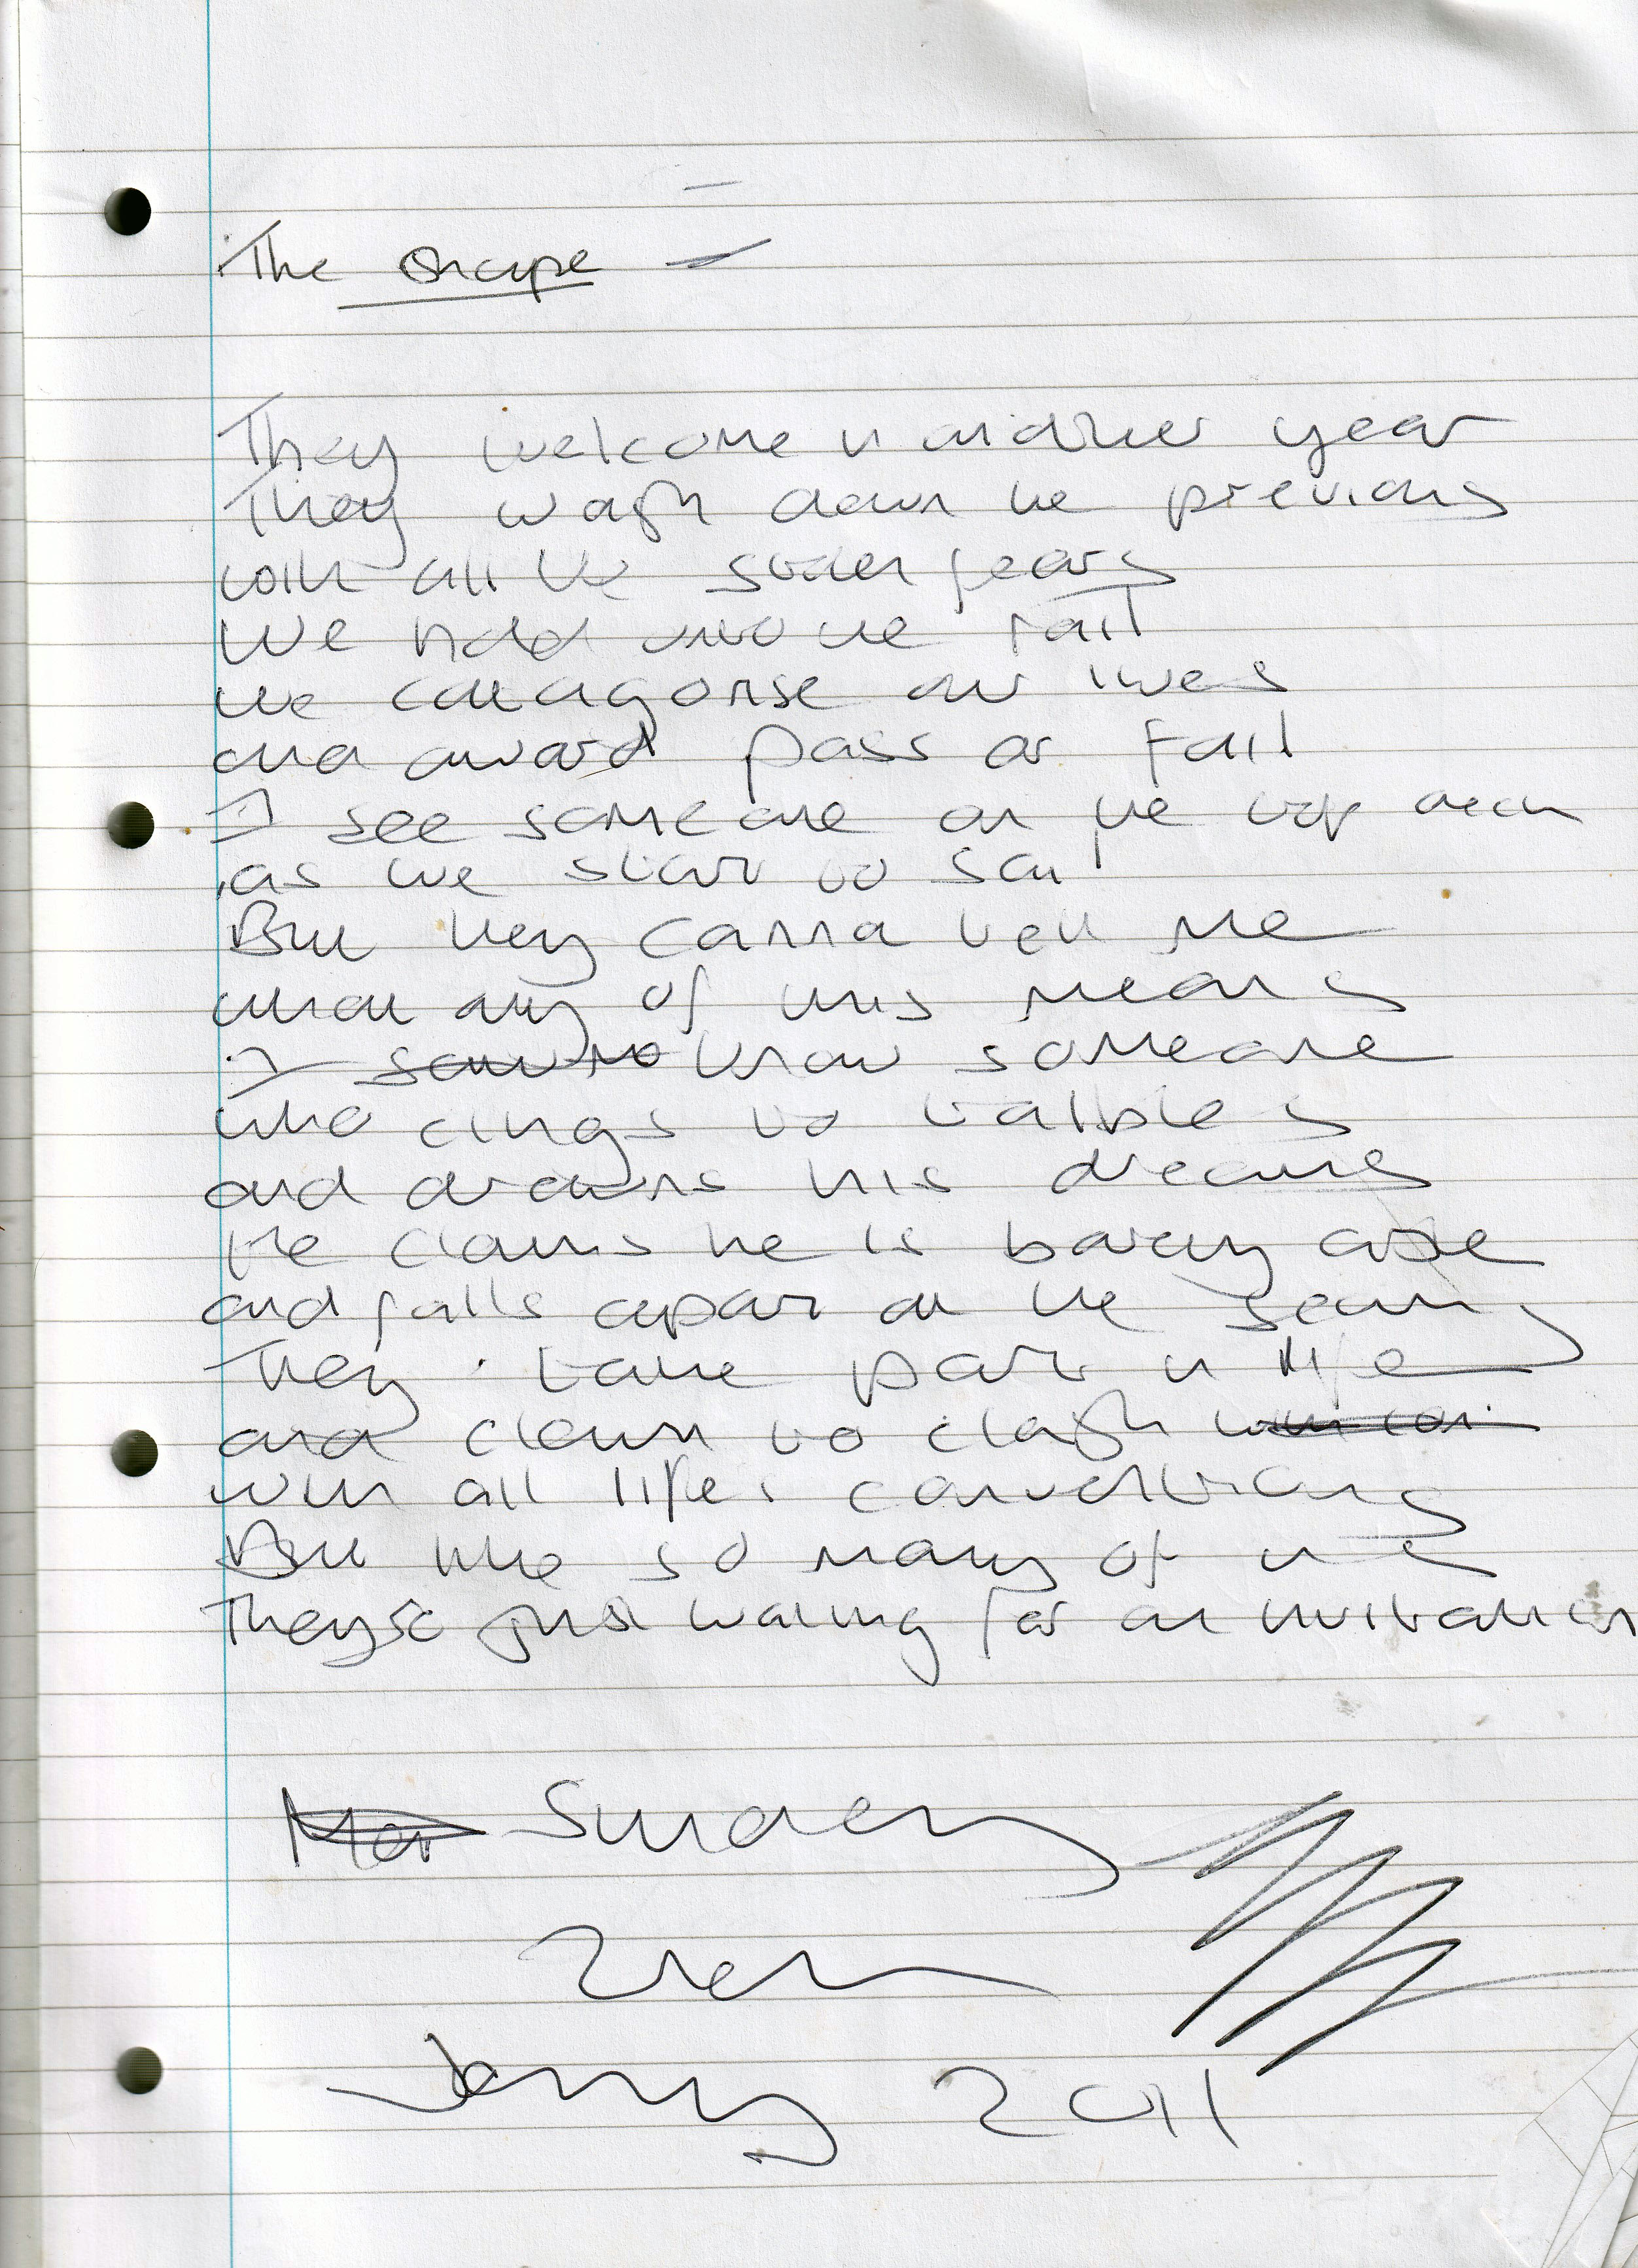 The Shape
They welcome in another year
They wash down the previous
with all the stolen fears
We hold onto the rail
we catagorise our lives
and award pass or fail
I see someone on the top deck
as we start to sail
But they canna tell me
what any of this means
I know someone
who clings to tables
and drowns his dreams
He claims he is barely alive
and falls apart at the seams
They take part in life
and clown to clash
with all life's convictions
But like so many of us
They're just waiting for an invitation
Sunday
2nd
January 2011